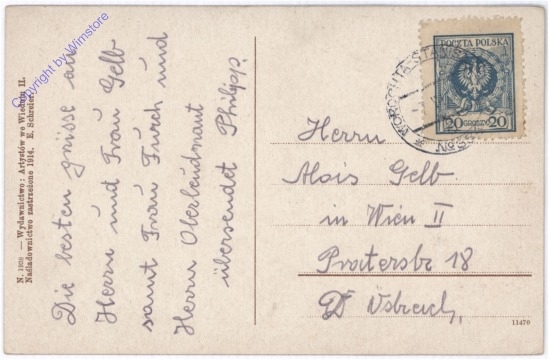 Die besten grüsse an
Herrn und Frau Gelb
samt Frau Furch und
Herrn Oberleudnant
übersendet Philipp.
Herrn
Alois Gelb
in Wien II
Pratersbr 18
POCZTA POLSKA
20 GROSZY 20
WOROCHTA
N. 1908 — Wydawnictwo: Artystów we Wiedniu II.
Naśladownictwo zastrzeżone 1914. E. Schreier.
11470
Copyright by Winstore